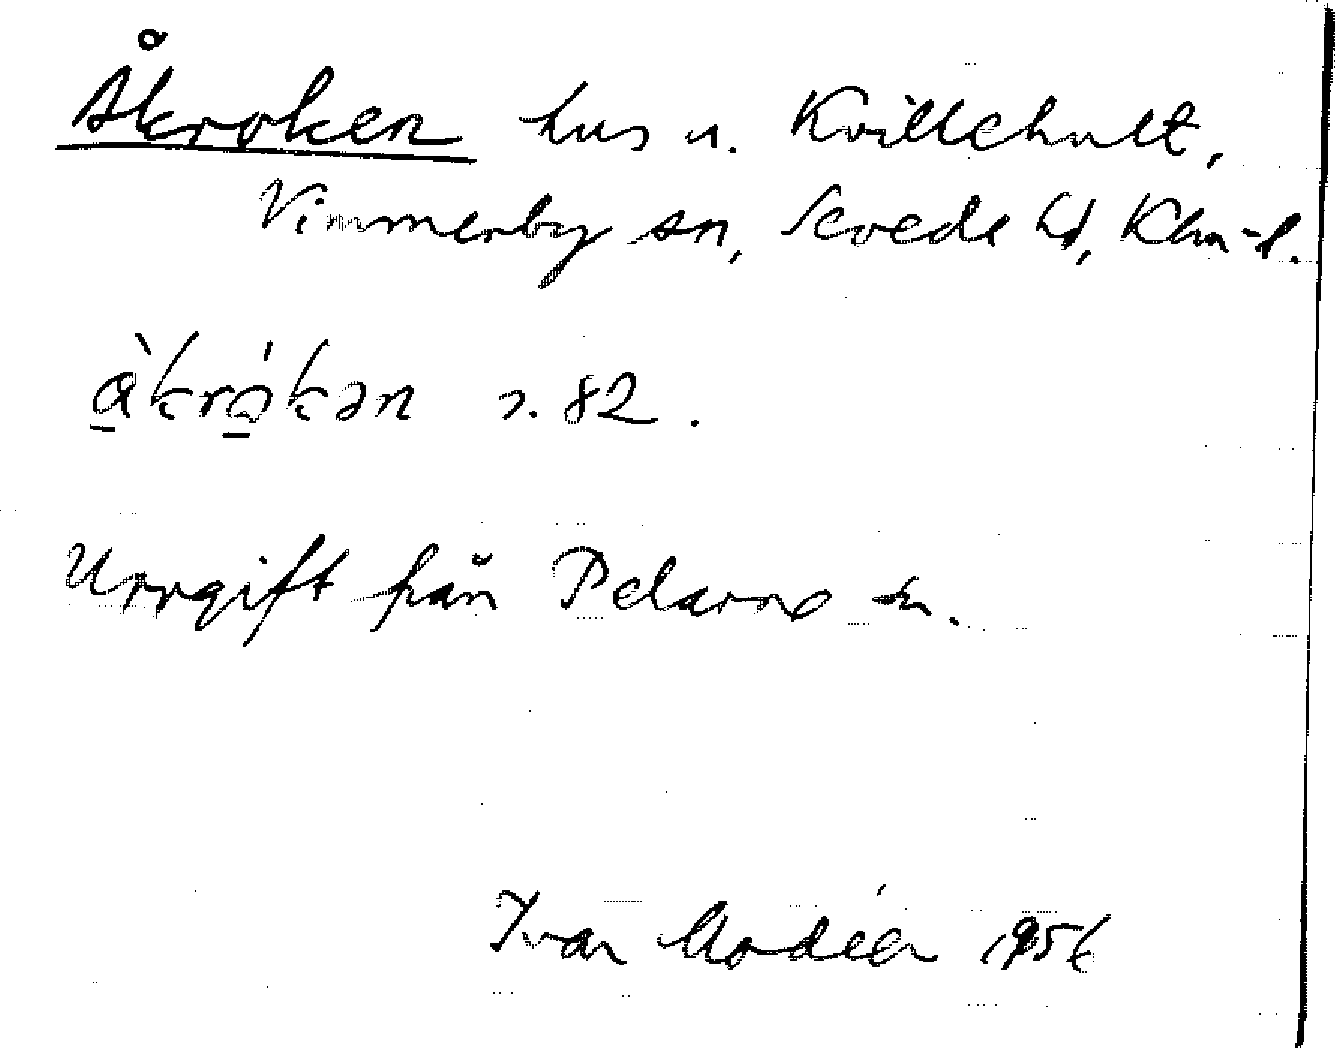 Åkroken hus u. Kvillehult,
Vimmerby sn, Sevede hd, Klm-l.
ɑ̠̀krǫ́kən s. 82.
Uppgift från Pelarne sn.
Ivar Modéer 1956